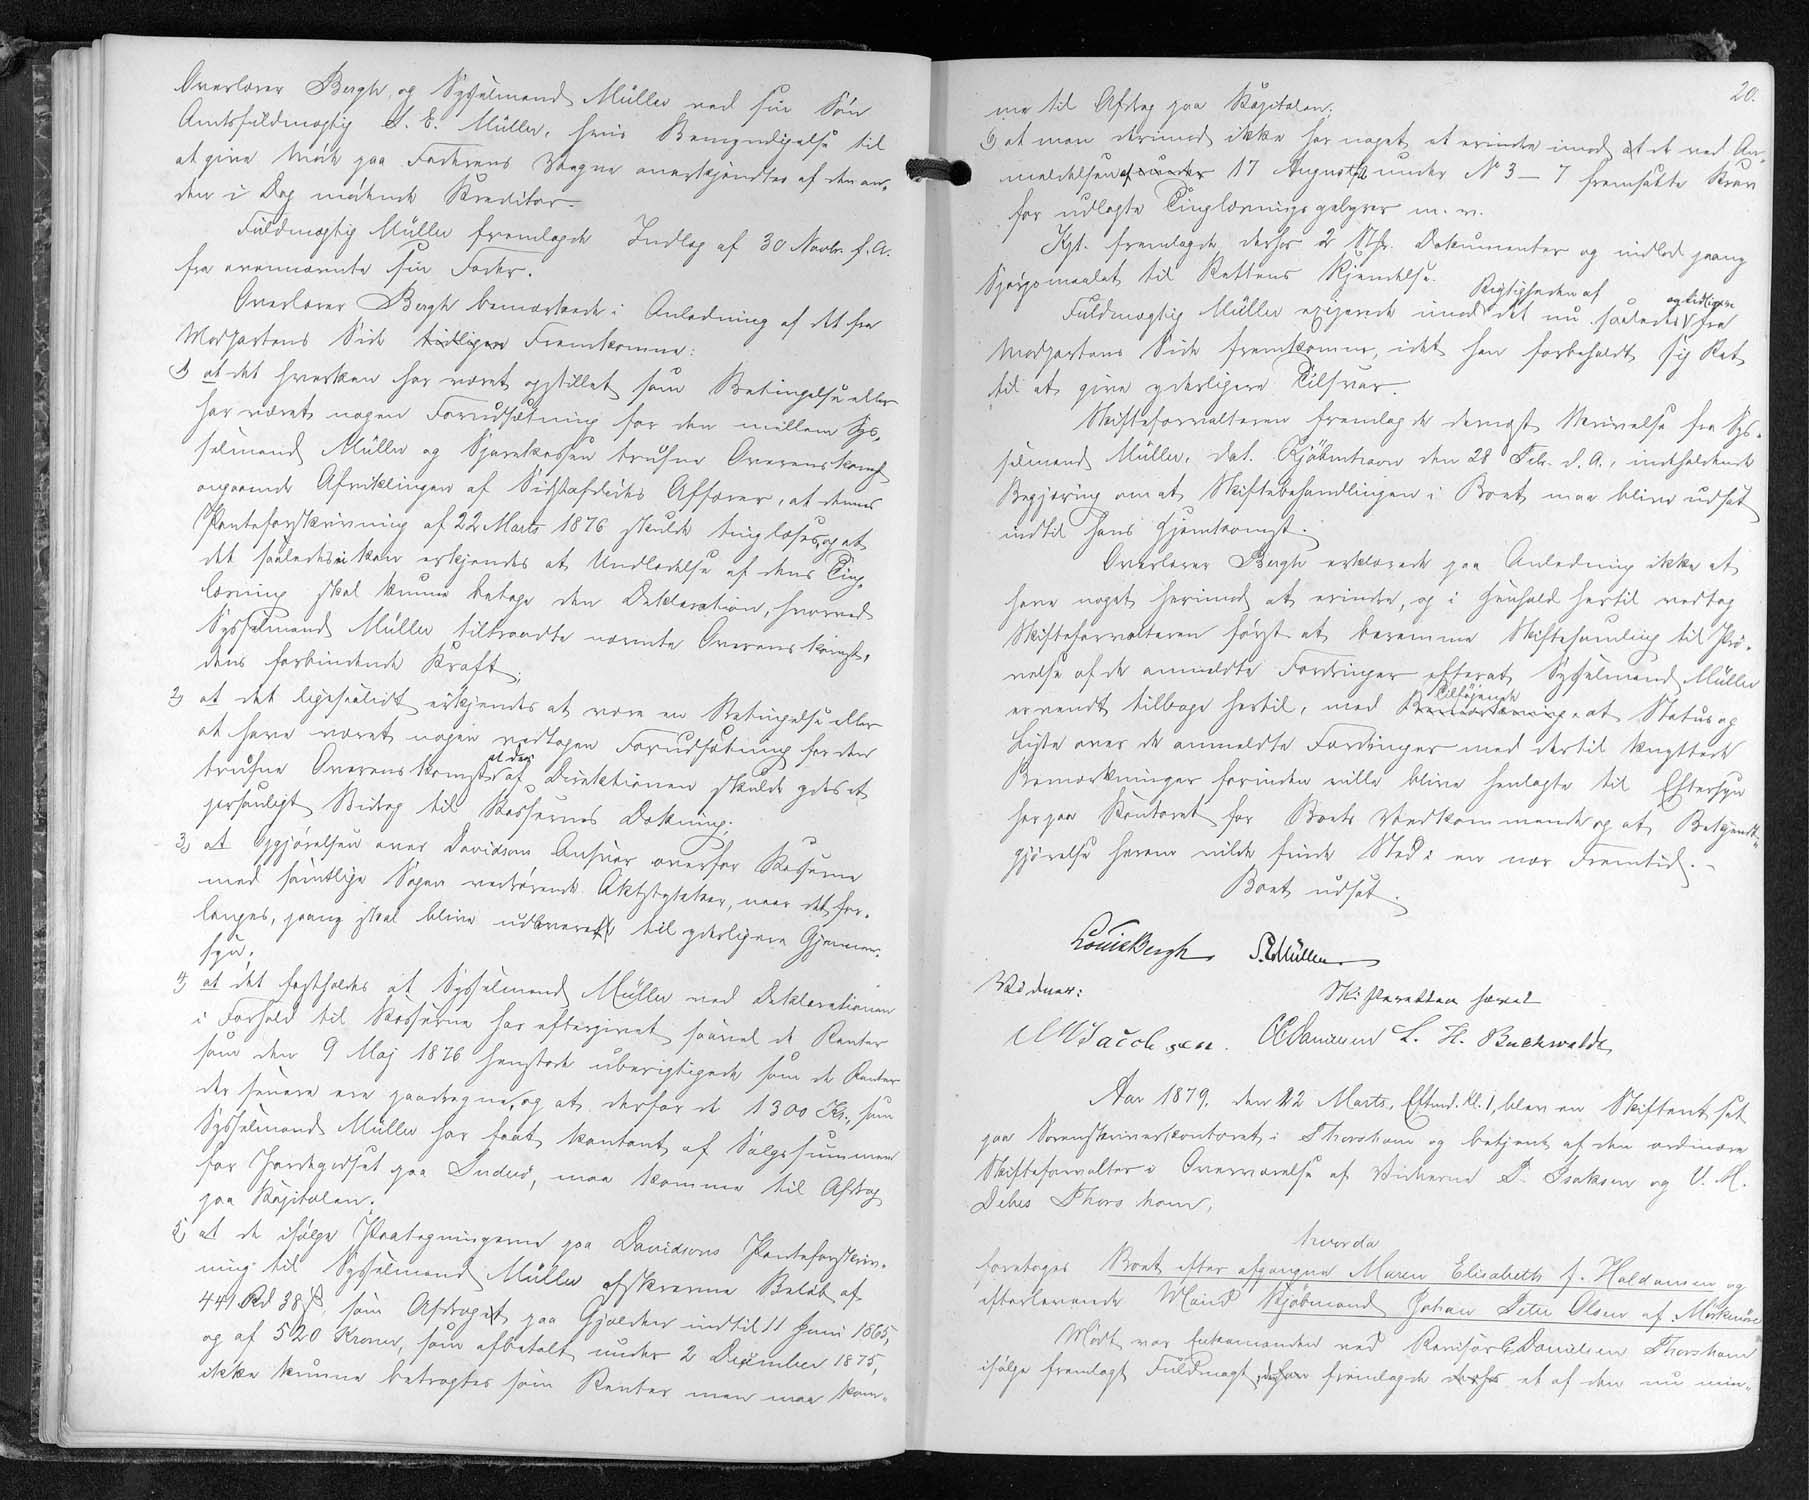 Overlærer Bergh og Sysselmand Müller ved sin Søn
Amtsfuldmægtig S. E. Müller, hvis Bemyndigelse til
at give Møde paa Faderens Vegne anerkjendtes af den an-
den i Dag mødende Kreditor.
Fuldmægtig Müller fremlagde Indlæg af 30 Novbr. f. A.
fra ovennævnte sin Fader.
Overlærer Bergh bemærkede i Anledning af det fra
Modpartens Side tidligere Fremkomne:
1) at det hverken har været opstillet som Betingelse eller
har været nogen Forudsætning for den mellem Sys-
selmand Müller og Sparekassen trufne Overenskomst
angaaende Afviklingen af Sidstafdødes Affærer, at dennes
Panteforskrivning af 22 Marts 1876 skulde tinglæses, og at
det saaledes ei kan erkjendes at Undladelse af dens Ting-
læsning skal kunne betage den Deklaration, hvorved
Sysselmand Müller tiltraadte nævnte Overenskomst,
dens forbindende Kraft;
2) at det ligesaalidt erkjendes at være en Betingelse eller
at have været nogen vedtagen Forudsætning for den
trufne Overenskomst at der af Direktionen skulde ydes et
personligt Bidrag til Kassernes Dækning;
3) at Opgjørelsen over Davidsens Ansvar overfor Kasserne
med samtlige Sagen vedrørende Aktstykker, naar det for-
langes, paany skal blive udleveret til yderligere Gjennem-
syn;
4) at det fastholdes at Sysselmand Müller ved Deklarationen
i Forhold til Kasserne har eftergivet saavel de Renter
som den 9 Maj 1876 henstode uberigtigede som de Renter
der senere ere paadragne, og at derfor de 1300 Kr., som
Sysselmand Müller har faaet kontant af Salgssummen
for Jordegodset paa Suderø, maa komme til Afdrag
paa Kapitalen;
5) at de ifølge Paategningerne paa Davidsens Panteforskriv-
ning til Sysselmand Müller afskrevne Beløb af
441 Rd 38 ß, som Afdraget paa Gjælden indtil 11 Juni 1865,
og af 520 Kroner, som afbetalt under 2 December 1875,
ikke kunne betragtes som Renter men maa kom-
20.
me til Afdrag paa Kapitalen;
6) at man derimod ikke har noget at erindre imod at de ved An-
meldelsen af under 17 August under No 3 – 7 fremsatte Krav
for udlagte Tinglæsningsgebyrer m. v.
Kpt. fremlagde derfor 2 Stkr. Dokumenter og indlod paany
Spørgsmaalet til Rettens Kjendelse.
Rigtigheden af
og tidligere
Fuldmægtig Müller exciperede imod det nu saaledes fra
Modpartens Side fremkomne, idet han forbeholdt sig Ret
til at give yderligere Tilsvar.
Skifteforvalteren fremlagde dernæst Skrivelse fra Sys-
selmand Müller, dat. Kjøbenhavn den 28 Feb. d. A., indeholdende
Begjæring om at Skiftebehandlingen i Boet maa blive udsat
indtil hans Hjemkomst.
Overlærer Bergh erklærede paa Anledning ikke at
have noget herimod at erindre, og i Henhold hertil vedtog
Skifteforvalteren først at beramme Skiftesamling til Prø-
velse af de anmeldte Fordringer efterat Sysselmand Müller
Tilføjende
er vendt tilbage hertil, med Bemærkning, at Status og
Liste over de anmeldte Fordringer med dertil knyttede
Bemærkninger forinden ville blive henlagte til Eftersyn
her paa Kontoret for Boets Vedkommende og at Bekjendt-
gjørelse herom vilde finde Sted i en nær Fremtid. –
Boet udsat.
Louis Bergh S. E. Müller
Vidner: Skifteretten hævet
M Jacobsen. CDanielsen L. H. Buchwaldt
Aar 1879, den 22 Marts, Eftmd. kl. 1, blev en Skifteret sat
paa Sorenskriverkontoret i Thorshavn og betjent af den ordinære
Skifteforvalter i Overværelse af Vidnerne D. Isaksen og U. M.
Debes Thorshavn,
hvorda
foretoges Boet efter afgangne Maren Elisabeth f. Haldansen og
efterlevende Mand Kjøbmand Johan Peter Olsen af
Mødt var Enkemanden ved Revisor CDanielsen Thorshavn
ifølge fremlagt Fuldmagt, fremlagde derfor et af den nu min-